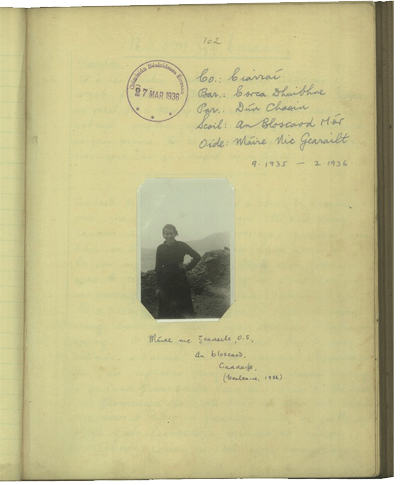 102
27 MAR 1936
Co.: Ciarraí
Bar.: Corca Dhuibhne
Par.: Dún Chaoin
Scoil: An Bloscaod Mór
Oide: Máire Nic Gearailt
9. 1935 — 2. 1936
Máire nic Gearailt, O.S.,
An blascaod,
Ciarraighe.